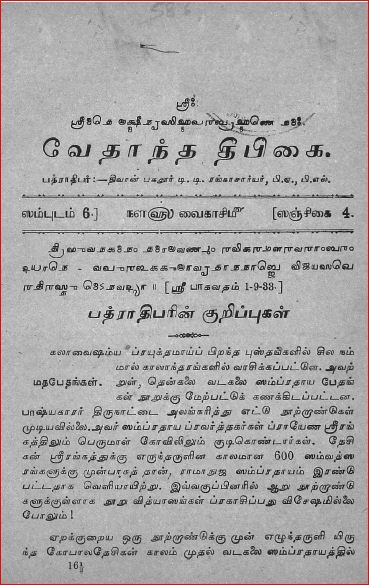 ஸ்ரீ:
வேதாந்த தீபிகை.
பத்ராதிபர்:—திவான் பகதூர் டி. டி. ரங்காசார்யர், பி.ஏ., பி.எல்.
ஸம்புடம் 6.] நளஸ்ரீ வைகாசிமீ [ஸஞ்சிகை 4.
[ஸ்ரீ பாகவதம் 1-9-33.]
பத்ராதிபரின் குறிப்புகள்
கலாவைஷம்ய ப்ரயுக்தமாய்ப் பிறந்த புஸ்தகங்களில் சில நம்
மால் காலாந்தரங்களில் வாசிக்கப்பட்டன. அவற்
மதபேதங்கள். றுள், தென்கலை வடகலை ஸம்ப்ரதாய பேதங்
கள் நூறுக்கு மேற்பட்டுக் கணக்கிடப்பட்டன.
பாஷ்யகாரர் திருநாட்டை அலங்கரித்து எட்டு நூற்றுண்டுகள்
முடியவில்லை. அவர் ஸம்ப்ரதாய ப்ரவர்த்தகர்கள் ப்ராயேண ஸ்ரீரங்
கத்திலும் பெருமாள் கோவிலிலும் குடிகொண்டார்கள். தேசி
கன் ஸ்ரீரங்கத்துக்கு எழுந்தருளின காலமான 600 ஸம்வத்ஸ
ரங்களுக்கு முன்பாகத் தான், ராமாநுஜ ஸம்ப்ரதாயம் இரண்டு
பட்டதாக வெளியாயிற்று. இவ்வகுப்பினரில் ஆறு நூற்றுண்டு
களுக்குள்ளாக நூறு வித்யாஸங்கள் ப்ரகாசிப்பது விசேஷமில்லை
போலும்!
ஏறக்குறைய ஒரு நூற்றுண்டுக்கு முன் எழுந்தருளி யிரு
ந்த கோபாலதேசிகன் காலம் முதல் வடகலை ஸம்ப்ரதாயத்தில்
16½